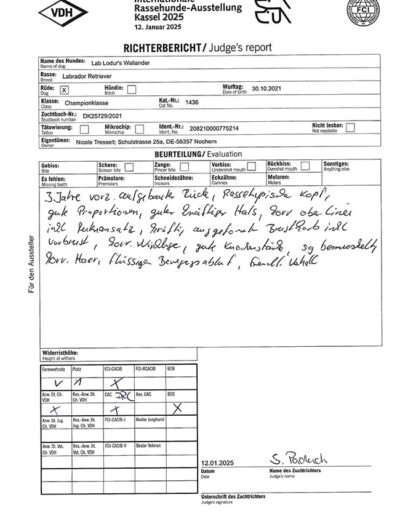 VDH
Internationale
Rassehunde-Ausstellung
Kassel 2025
12. Januar 2025
FCI
RICHTERBERICHT / Judge's report
Name des Hundes: Lab Lodur's Wallander
Name of dog
Rasse: Labrador Retriever
Breed
Rüde: X Hündin: Wurftag: 30.10.2021
Dog Bitch Date of birth
Klasse: Championklasse Kat.-Nr.: 1436
Class Cat No.
Zuchtbuch-Nr.: DK25729/2021
Studbook number
Tätowierung: Mikrochip: Ident.-Nr.: 208210000770214 Nicht lesbar:
Tattoo Microchip Ident. No. Not readable
Eigentümer: Nicole Tressett; Schulstrasse 25a, DE-56357 Nochern
Owner
BEURTEILUNG/ Evaluation
Gebiss: Schere: Zange: Vorbiss: Rückbiss: Sonstiges:
Bite Scissor bite Undershot mouth Overshot mouth Anything else
Es fehlen: Prämolare: Schneidezähne: Eckzähne: Molaren:
Missing teeth Premolars Incisors Canines Molars
3 Jahre vorz. aufgebauter Rüde, Rassetypischer Kopf,
gute Proportionen, guter kräftiger Hals, vorz obere Linie
inkl Rutenansatz, kräftig ausgeformter Brustkorb inkl
Vorbrust, vorz. Winklge, gute Knochenstärke, sg bemuskelt
vorz. Haar, flüssiger Bewegungsablauf, freundl. Verhalt
Für den Aussteller
Widerristhöhe:
Height at withers
Formwertnote Platz FCI-CACIB FCI-RCACIB BOB
V 1 X
Anw. Dt. Ch. VDH Res.-Anw. Dt. Ch. VDH CAC Res. CAC BOS
X X X
Anw. Dt. Jug. Ch. VDH Res.-Anw. Dt. Jug. Ch. VDH FCI-CACIB-J Bester Junghund
Anw. Dt. Vet. Ch. VDH Res.-Anw. Dt. Vet. Ch. VDH FCI-CACIB-V Bester Veteran
12.01.2025
Datum Name des Zuchtrichters
Date Judge's name
Unterschrift des Zuchtrichters
Judge's signature